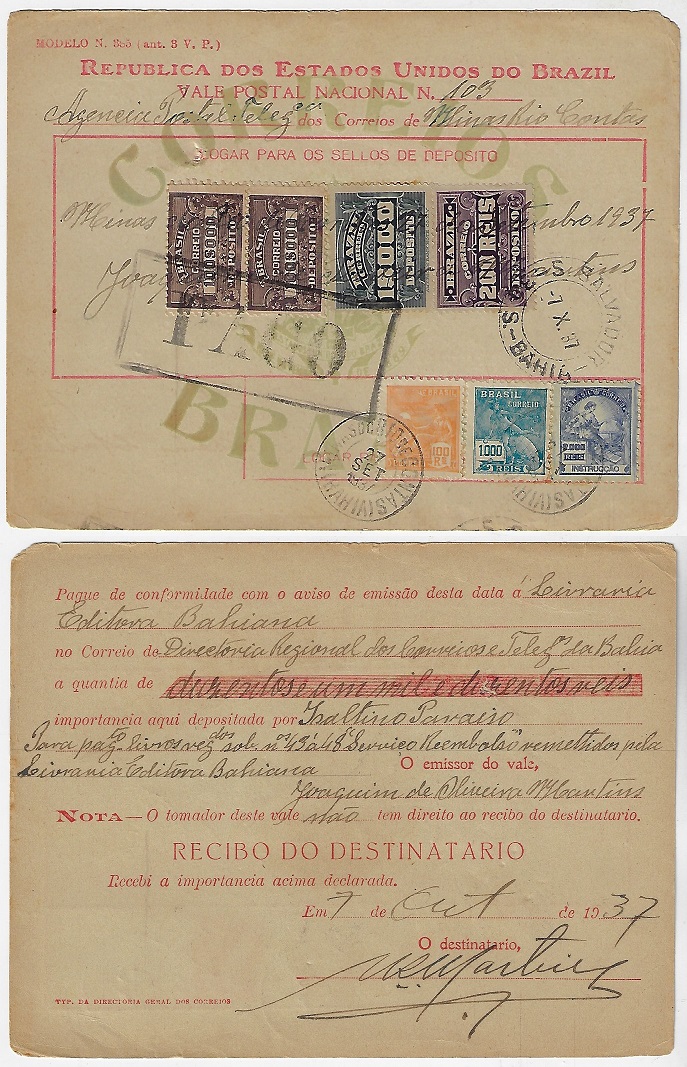 MODELO N. 385 (ant. 3 V. P.)
REPUBLICA DOS ESTADOS UNIDOS DO BRAZIL
VALE POSTAL NACIONAL N. 103
Agencia Postal Teleg.ca dos Correios de Minas Rio Contas
CORREIOS
LOGAR PARA OS SELLOS DE DEPOSITO
Minas 1937
Joaquim Martins
BRASIL CORREIO 100$000 DEPOSITO
BRASIL CORREIO 100$000 DEPOSITO
1$000 DEPOSITO
BRAZIL CORREIO 200 REIS DEPOSITO
PAGO
SALVADOR
7 X 37
BAHIA
BRASIL 100 RÉIS
BRASIL CORREIO 1.000 RÉIS
2.000 REIS INSTRUCÇÃO
27 SET 1937
BRA
LOGAR
Pague de conformidade com o aviso de emissão desta data á Livraria
Editora Bahiana
no Correio de Directoria Regional dos Correios e Telegos da Bahia
a quantia de duzentos e um mil e duzentos reis
importancia aqui depositada por Isaltino Paraiso
Para pagto livros reg.dos sob. nos 43 á 48 "Serviço Reembolso" remettidos pela
Livraria Editora Bahiana O emissor do vale,
Joaquim de Oliveira Martins
NOTA — O tomador deste vale não tem direito ao recibo do destinatario.
RECIBO DO DESTINATARIO
Recebi a importancia acima declarada.
Em 7 de Out de 1937
O destinatario,
TYP. DA DIRECTORIA GERAL DOS CORREIOS